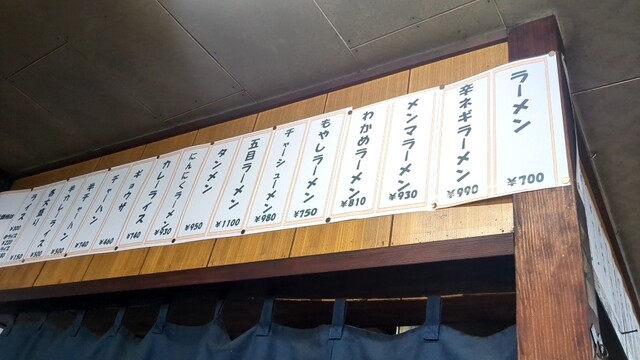 ラーメン
¥700
辛ネギラーメン
¥990
メンマラーメン
¥930
わかめラーメン
¥810
もやしラーメン
¥750
チャーシューメン
¥980
五目ラーメン
¥1100
タンメン
¥950
にんにくラーメン
¥930
カレーライス
¥740
ギョウザ
¥460
チャーハン
¥740
半チャーハン
¥500
半カレーライス
¥500
各大盛り
¥150
ライス